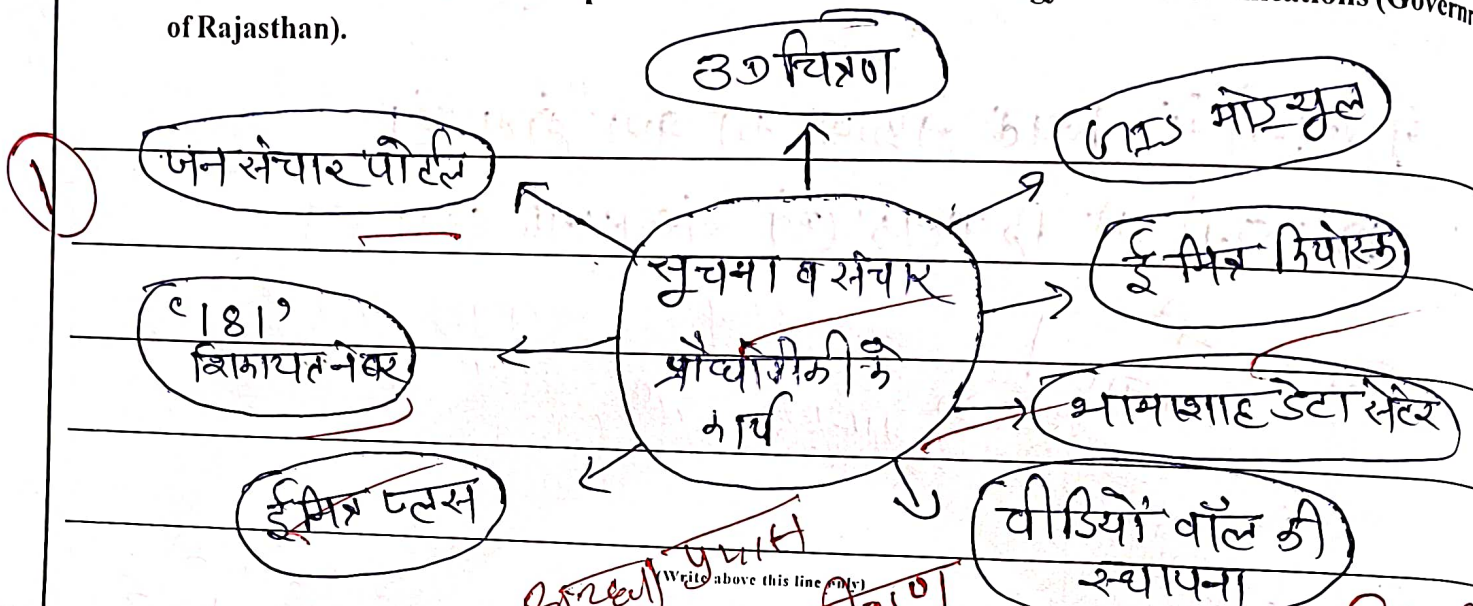 of Rajasthan).
3D चित्रण
जन संचार पोर्टल
GIS मोड्यूल
सूचना व संचार
प्रौद्योगिकी के
कार्य
ई मित्र कियोस्क
'181'
शिकायत नंबर
भामाशाह डेटा सेंटर
ई मित्र प्लस
वीडियों वॉल की
स्थापना
अच्छा प्रयास
(Write above this line only)